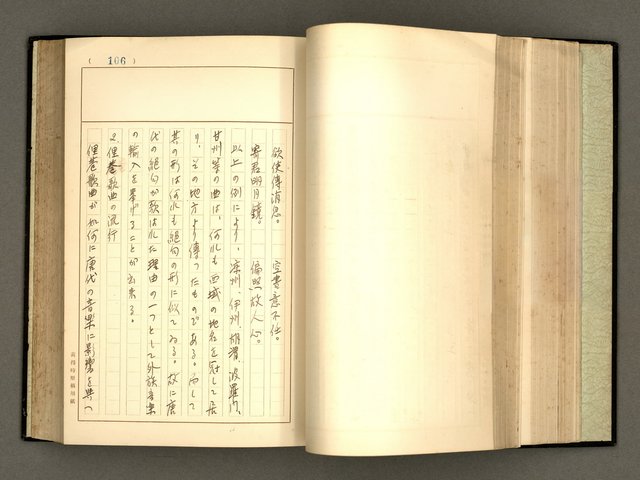 ( 106 )
欲使傳消息。 空書意不任。
寄君明月鏡。 偏照故人心。
以上の例により、凉州、伊州、婆羅門、
甘州等の曲は、何れも西域の地名を冠して居
り、その地方より傳つたものである。而して
其の形は何れも絶句の形に似てゐる。故に唐
代の絶句が歌はれた理由の一つとして外族音樂
の輸入を擧げることが出來る。
2.俚巷歌曲の流行
俚巷歌曲が如何に唐代の音樂に影響を與へ
黃得時原稿用紙